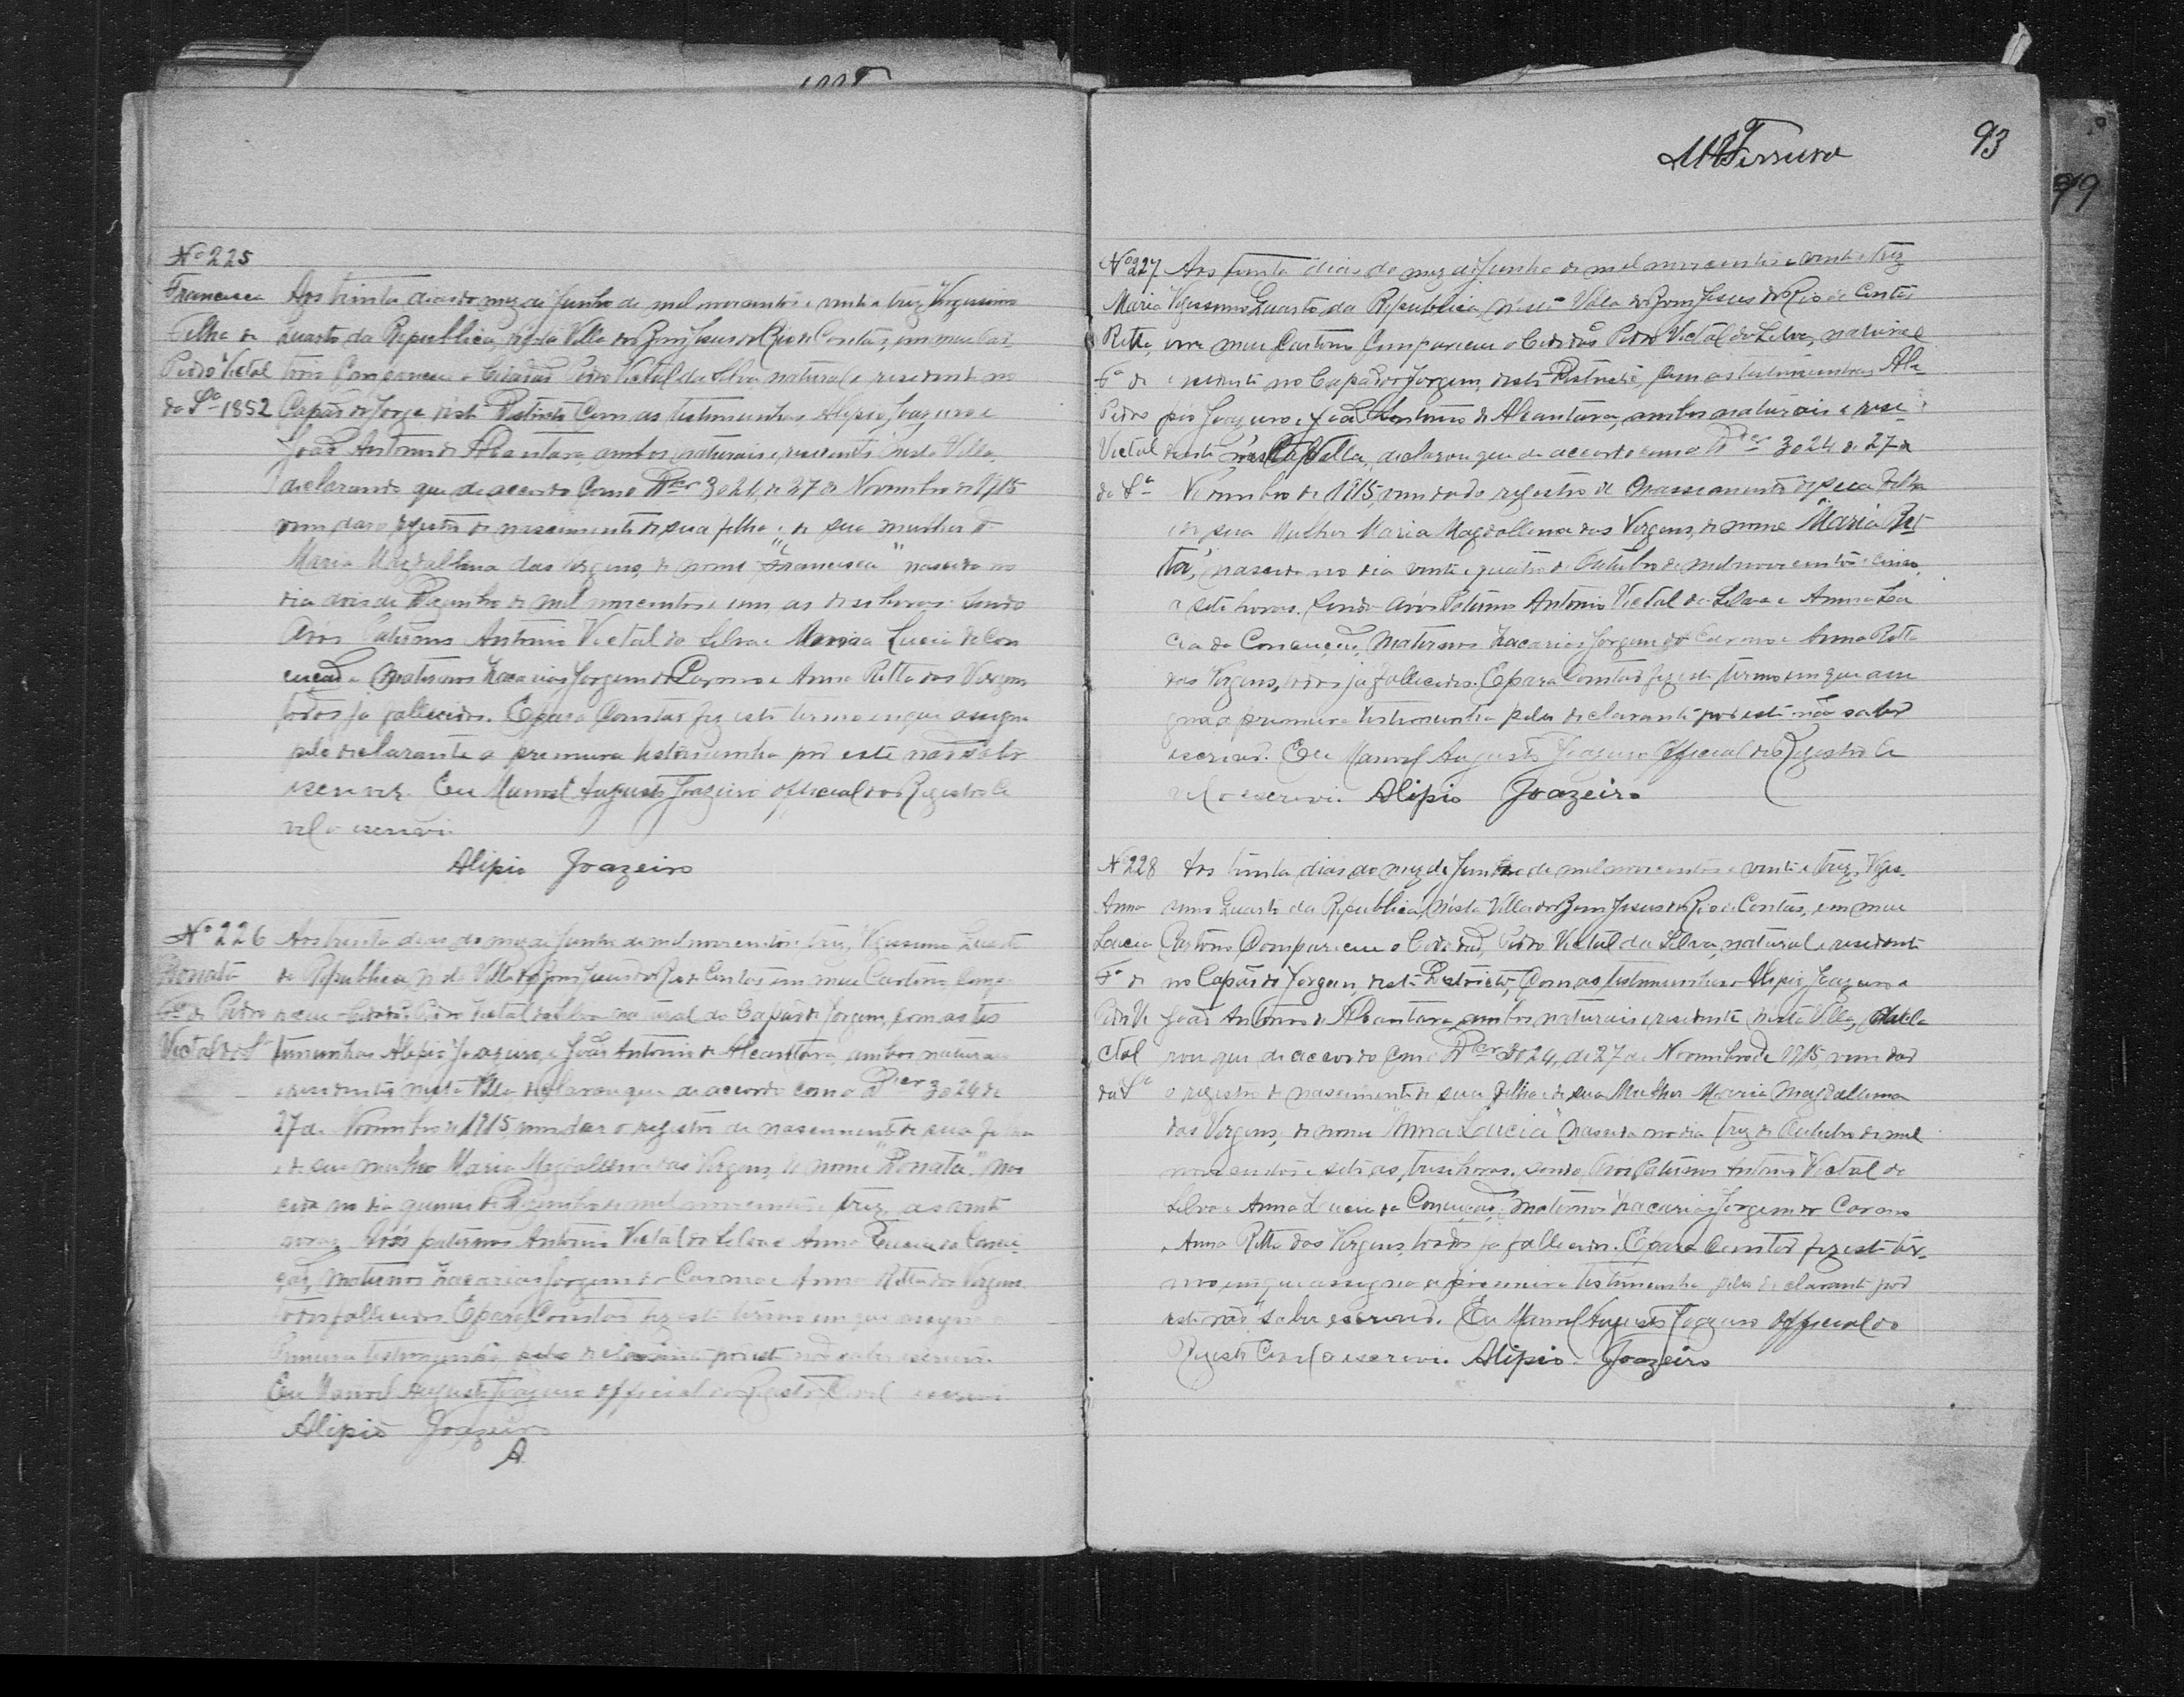 Nº 225
Francisca
Filha de
Pedro Victal
da Sª 1852
Aos trinta dias do mez de Junho de mil novecentos e vinte e trez, Vigesimo
Quarto da Republica, nesta Villa do Bom Jesus do Rio de Contas, em meu Car
torio Compareceu o Cidadão Pedro Victal da Silva natural e residente no
Capão do Jorge deste Districto Com as testimunhas Alipio Joazeiro e
João Antonio de Alcantara, ambos, naturais e residentes nesta Villa,
declarando que de accordo Com o Dcer 3024, de 27 de Novembro de 1915
vem dar o registro de nascimento de sua filha e de sua mulher D
Maria Magdallena das Virgens, de nome "Francisca" nascida no
dia dois de Dezembro de mil novecentos e um as horas. Sendo
Avós Paternos Antonio Victal da Silva e Lucia da Con
ceição e Maternos Zacarias Jorgem do Carmo e Anna Ritta das Virgens
todos ja fallecidos. E para Constar fiz este termo em que assigna
pelo declarante a premeira testemunha por este não saber
escrever. Eu Manoel Augusto Joazeiro official do Registro Ci
vel o escrevi.
Alipio Joazeiro
Nº 226
Donata
Fª de Pedro
Victal da Sª
Aos trinta dias do mez de Junho de mil novecentos e trez, Vigesimo Quarto
da Republica, nesta Villa do Bom Jesus do Rio de Contas em meu Cartorio Compa
receu o Cidadão Pedro Victal da Silva natural do Capão do Jorgem, com as tes
timunhas Alipio Joazeiro, e João Antonio de Alcantara, ambos naturais
e residentes nesta Villa declarou que de accordo com o Dcer 3024 de
27 de Novembro de 1915, vem dar o registro de nascimento de sua filha
e de sua mulher Maria Magdallena das Virgens, de nome "Donata" nas
cida no dia quinze de Dezembro de mil novecentos e trez, as vinte
horas Avós paternos Antonio Victal da Silva e Anna Lucia da Concei
ção, Maternos Zacarias Jorgem do Carmo e Anna Ritta das Virgens
todos fallecidos. E para Constar fiz este termo em que assigna a
Primeira testimunha, pelo declarante por este não saber escrever.
Eu Manoel Augusto Joazeiro official do Registro Civel escrevi
Alipio Joazeiro
A
MAFerreira
93
99
Nº 227
Maria
Ritta,
Fª de
Pedro
Victal
da Sª
Aos trinta dias do mez de Junho de mil novecentos e vinte e trez
Vigessimo Quarto da Republica, nesta Villa do Bom Jesus do Rio de Contas
em meu Cartorio Compareceu o Cidadão Pedro Victal da Silva, natural
e residente no Capão do Jorgem, deste Districto, Com as testimunhas Ali
pio Joazeiro e João Antonio de Alcantara, ambos naturais e resi
dente nesta Villa, declarou que de accordo com o Dcer 3024 de 27 de
Novembro de 1915, vem dar o registro de nassimento de sua Filha
e de sua Mulher Maria Magdallena das Virgens, de nome "Maria Rit
ta", nascida no dia vinte e quatro de Outubro de mil novecentos e cinco,
a sete horas. Sendo Avós Paternos Antonio Victal da Silva e Anna Lu
cia da Conceição, Maternos Zacarias Jorgem do Carmo e Anna Ritta
das Virgens, todos já fallecidos. E para Constar fiz este termo em que assi
gna a premeira testemunha pelo declarante por este não saber
escrever. Eu Manoel Augusto Joazeiro Official do Registro Ci
vel o escrevi. Alipio Joazeiro
Nº 228
Anna
Lucia
Fª de
Pedro Vi
ctal
da Sª
Aos trinta dias do mez de Junho de mil novecentos e vinte e trez, Vige-
simo Quarto da Republica, nésta Villa do Bom Jesus do Rio de Contas, em meu
Cartorio Compareceu o Cidadão, Pedro Victal da Silva, natural e residente
no Capão do Jorgem, deste Districto, Com as testimunhas Alipio Joazeiro e
João Antonio de Alcantara, ambos naturais e residente nesta Villa, decla
rou que de accordo Com o Dcer 3024, de 27 de Novembro de 1915, vem dar
o registro de nascimento de sua Filha e de sua Mulher Maria Magdallena
das Virgens, de nome "Anna Lucia" nascida no dia trez de Outubro de mil
novecentos e sete as, tres horas, sendo, Avós Paternos Antonio Victal da
Silva e Anna Lucia da Conceição, Maternos Zacarias Jorgem do Carmo
e Anna Ritta das Virgens, todos ja fallecidos. E para Constar fiz este ter-
mo em que assigna a premeira testimunha pelo declarante por
este não saber escrever. Eu Manoel Augusto Joazeiro Official do
Registro Civel o escrevi. Alipio Joazeiro